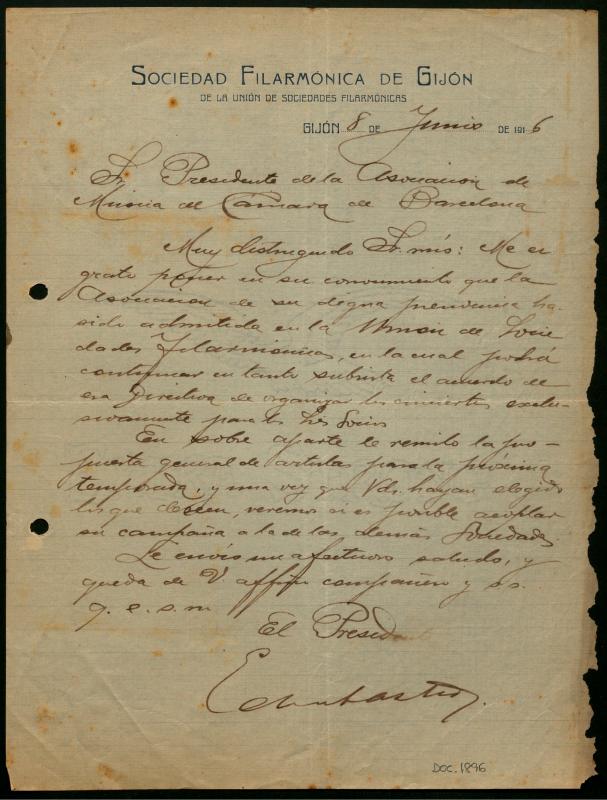 SOCIEDAD FILARMÓNICA DE GIJÓN
DE LA UNIÓN DE SOCIEDADES FILARMÓNICAS
GIJÓN 8 DE Junio DE 1916
Sr. Presidente de la Asociacion de
Música de Cámara de Barcelona
Muy distinguido Sr. mio: Me es
grato poner en su conocimiento que la
Asociacion de su digna presidencia ha
sido admitida en la Union de Socie
dades Filarmónicas, en la cual podrá
continuar en tanto subsista el acuerdo de
esa Directiva de organizar los conciertos exclu-
sivamente para los Sres Socios
En sobre aparte le remito la pro-
puesta general de artistas para la próxima
temporada, y una vez que Vds. hayan elegido
los que deseen, veremos si es posible acoplar
su campaña a la de las demás Sociedades
Le envio un afectuoso saludo, y
queda de V affmo compañero y s.s.
q. e. s. m
El President
DOC. 1896